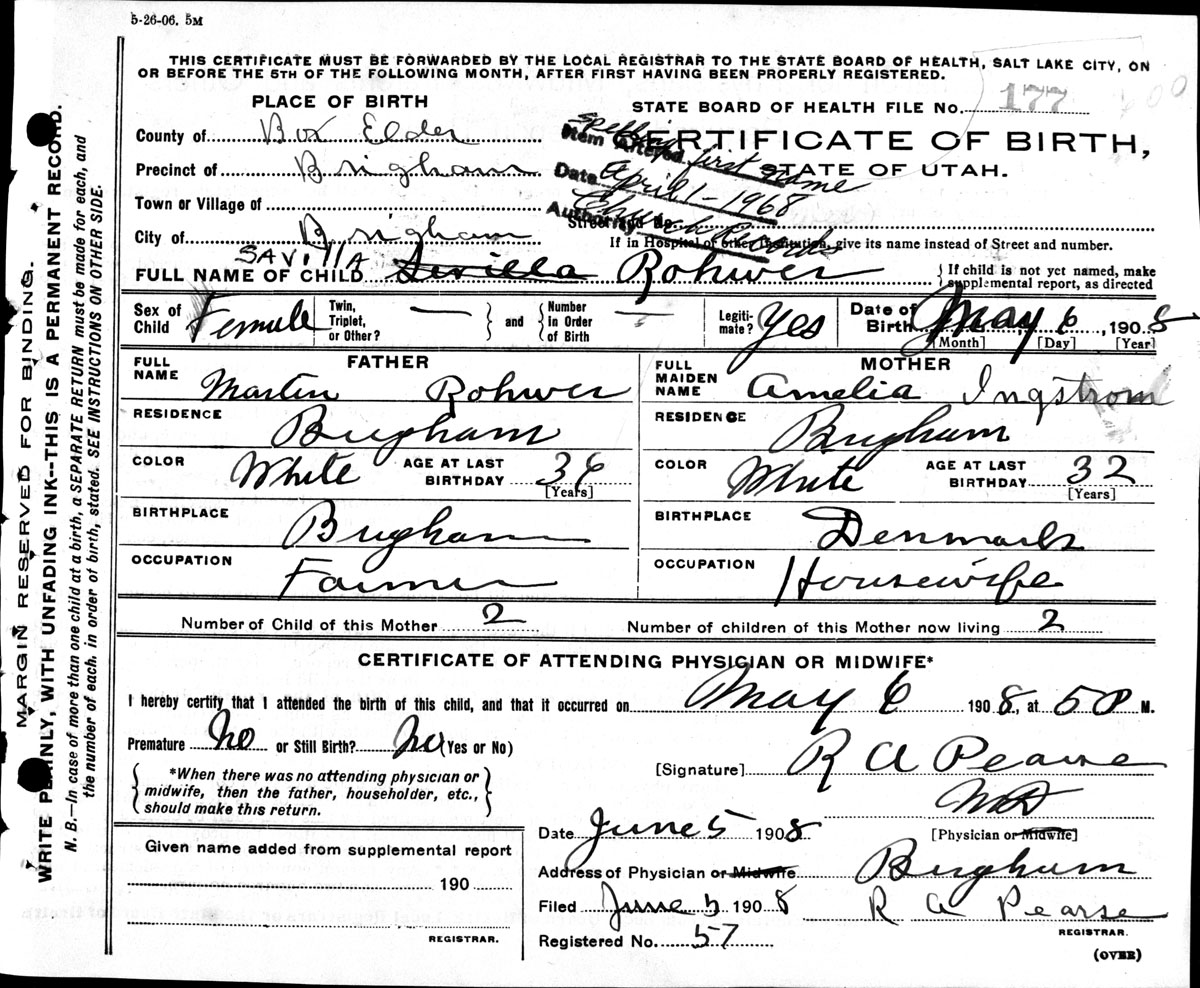 5-26-06. 5M
THIS CERTIFICATE MUST BE FORWARDED BY THE LOCAL REGISTRAR TO THE STATE BOARD OF HEALTH, SALT LAKE CITY, ON
OR BEFORE THE 5TH OF THE FOLLOWING MONTH, AFTER FIRST HAVING BEEN PROPERLY REGISTERED.
PLACE OF BIRTH
STATE BOARD OF HEALTH FILE No. 177
County of Box Elder
CERTIFICATE OF BIRTH,
STATE OF UTAH.
Item Altered spelling first name
Date April 1-1968
Authority Church Records
Precinct of Brigham
Town or Village of
Street and No.
City of Brigham
If in Hospital or other Institution, give its name instead of Street and number.
SAVILLA
FULL NAME OF CHILD Sevilla Rohwer
If child is not yet named, make
supplemental report, as directed
Sex of Child Female
Twin, Triplet, or Other? —
and
Number In Order of Birth —
Legiti-mate? Yes
Date of Birth May 6, 1908
[Month] [Day] [Year]
FATHER
FULL NAME Martin Rohwer
RESIDENCE Brigham
COLOR White AGE AT LAST BIRTHDAY 36 [Years]
BIRTHPLACE Brigham
OCCUPATION Farmer
MOTHER
FULL MAIDEN NAME Amelia Ingstrom
RESIDENCE Brigham
COLOR White AGE AT LAST BIRTHDAY 32 [Years]
BIRTHPLACE Denmark
OCCUPATION Housewife
Number of Child of this Mother 2
Number of children of this Mother now living 2
CERTIFICATE OF ATTENDING PHYSICIAN OR MIDWIFE*
I hereby certify that I attended the birth of this child, and that it occurred on May 6 1908, at 50 M.
Premature No or Still Birth? No (Yes or No)
*When there was no attending physician or
midwife, then the father, householder, etc.,
should make this return.
[Signature] R A Pearse
MD
[Physician or Midwife]
Date June 5 1908
Given name added from supplemental report
190
REGISTRAR.
Address of Physician or Midwife Brigham
Filed June 5 1908 R A Pearse
REGISTRAR.
Registered No. 57
(OVER)
MARGIN RESERVED FOR BINDING.
WRITE PLAINLY, WITH UNFADING INK--THIS IS A PERMANENT RECORD.
N. B.—In case of more than one child at a birth, a SEPARATE RETURN must be made for each, and
the number of each, in order of birth, stated. SEE INSTRUCTIONS ON OTHER SIDE.